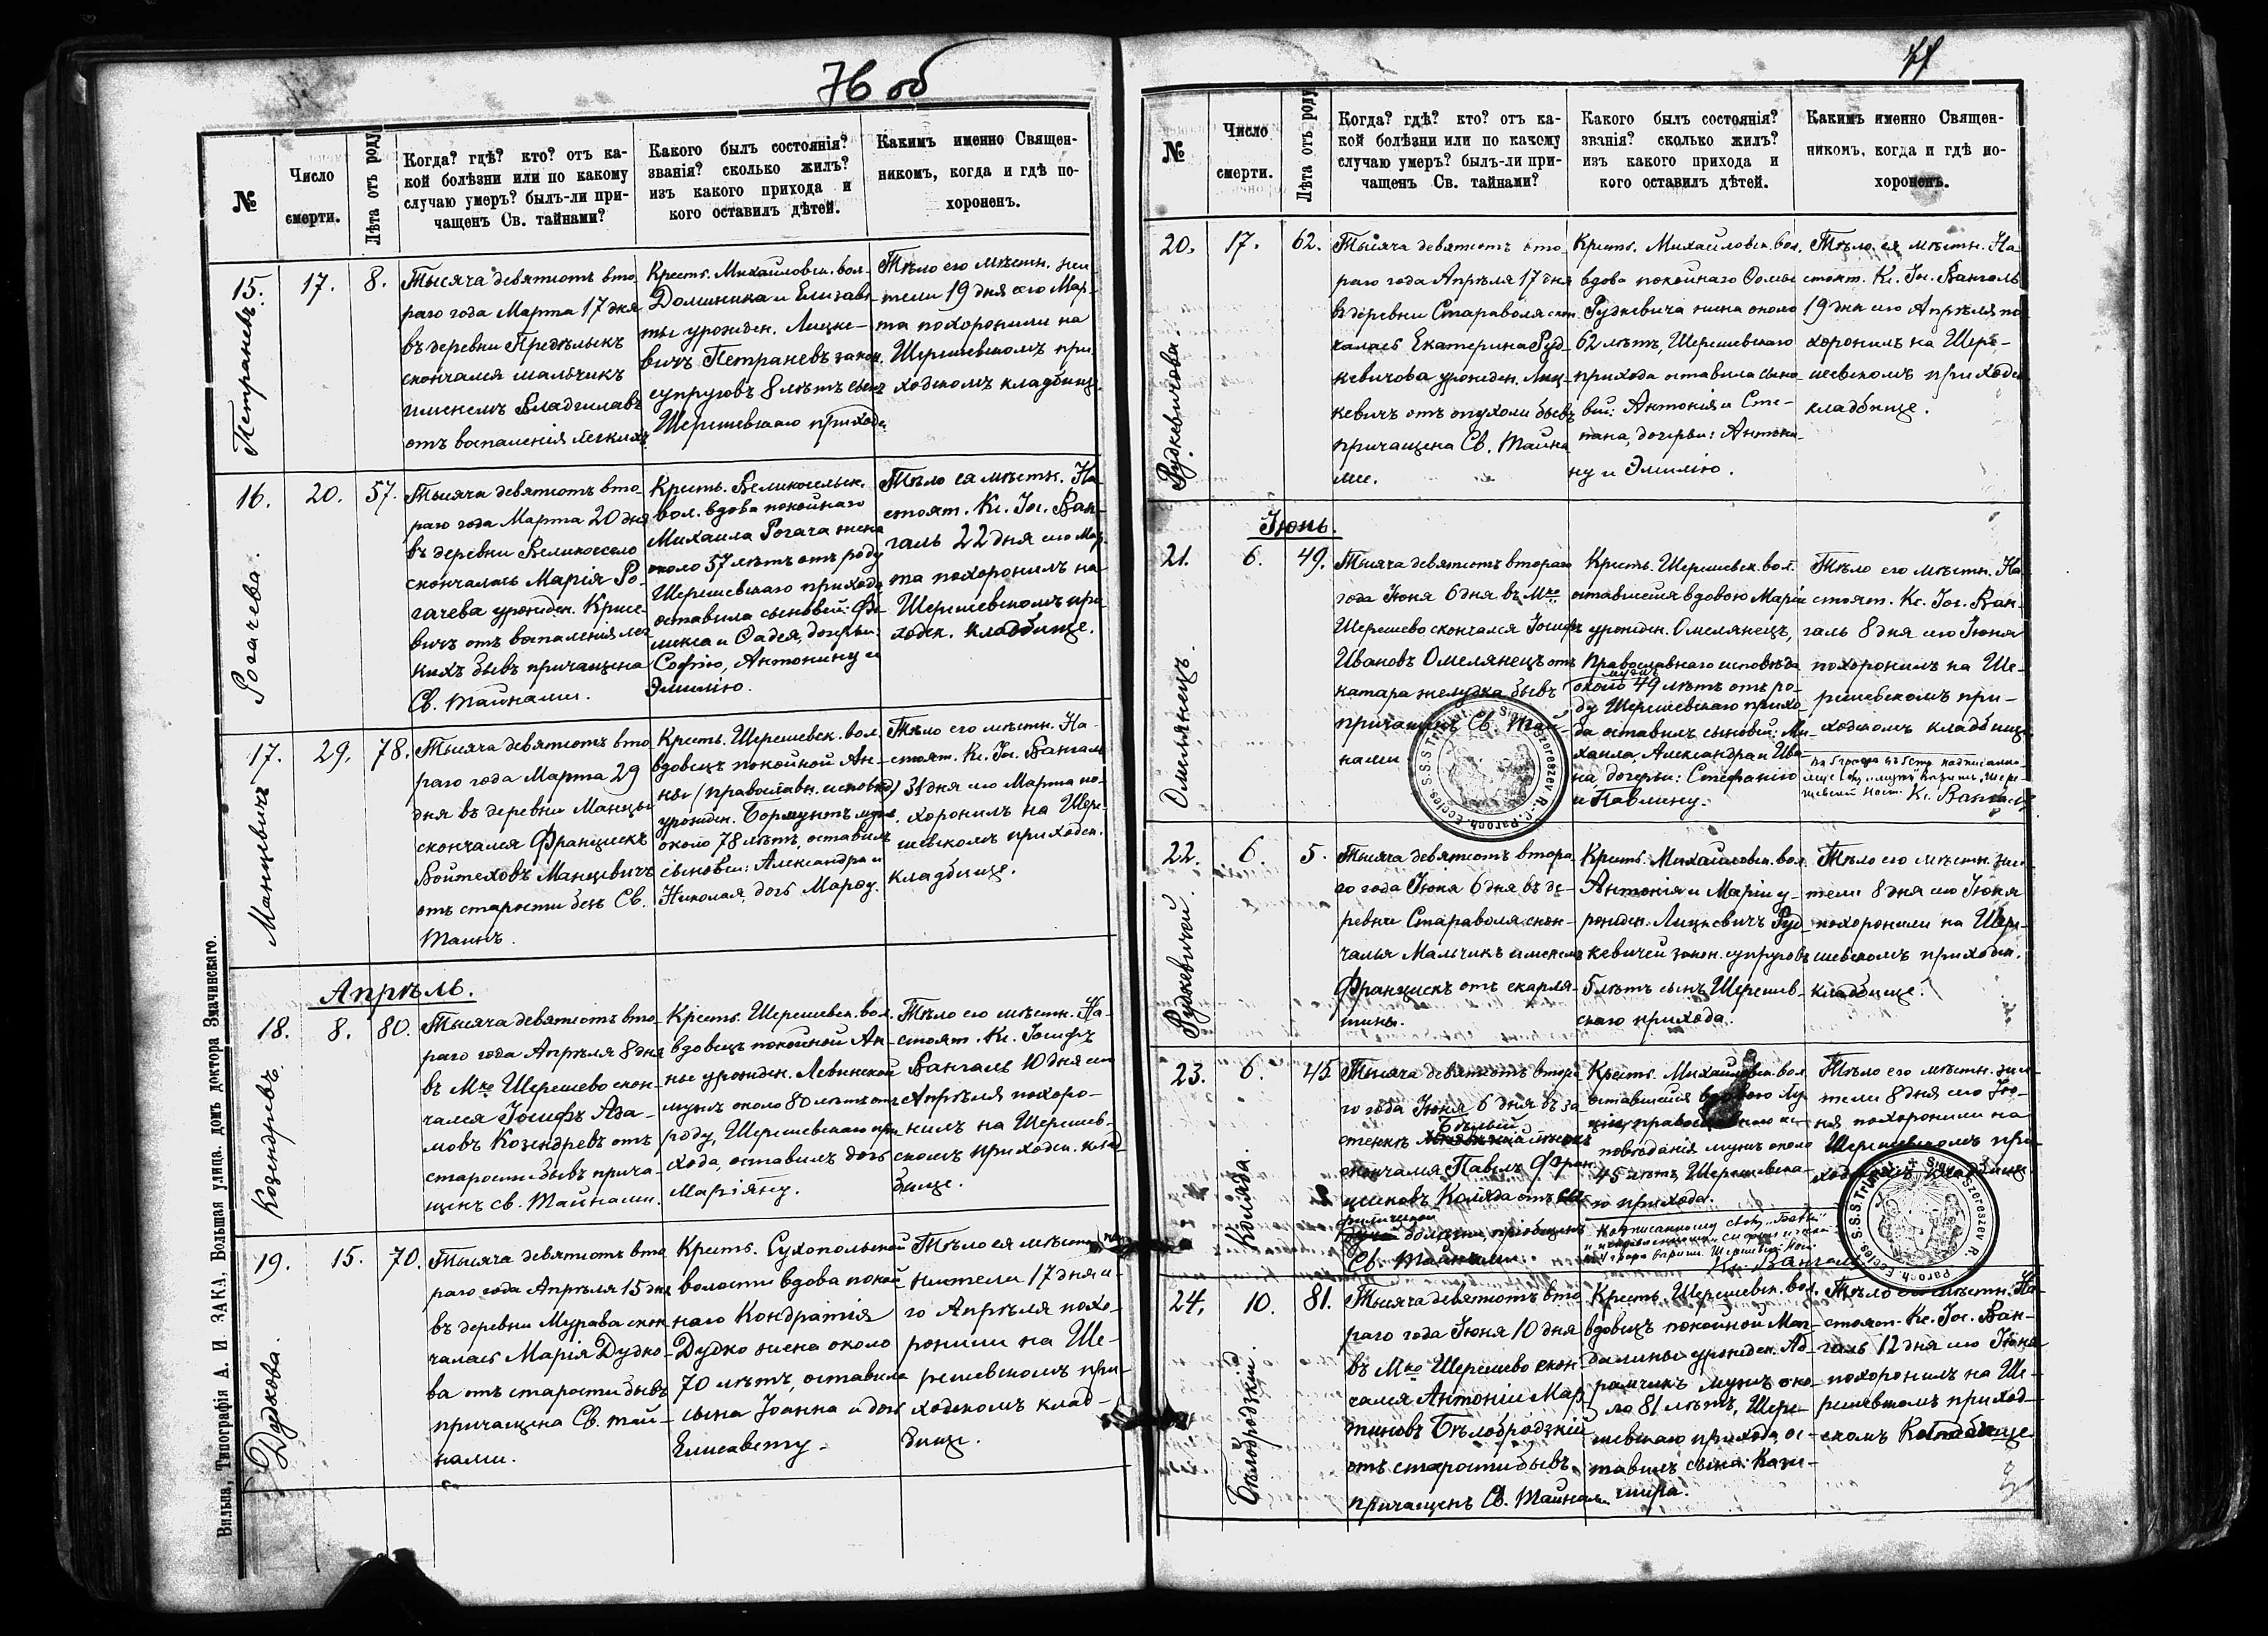 76 об
№
Число
смерти.
Лѣта отъ роду
Когда? гдѣ? кто? отъ ка-
кой болѣзни или по какому
случаю умеръ? былъ-ли при-
чащенъ Св. тайнами?
Какого былъ состоянія?
званія? сколько жилъ?
изъ какого прихода и
кого оставилъ дѣтей.
Какимъ именно Священ-
никомъ, когда и гдѣ по-
хороненъ.
15.
Петраневъ.
17.
8.
Тысяча девятьсотъ вто-
раго года Марта 17 дня
въ деревни
скончался мальчикъ
именемъ Владиславъ
отъ воспаленія легкихъ
Крест. Михайловск. вол.
Доминика и Елизаве-
ты урожден. Лицке-
вичъ Петраневъ закон.
супруговъ 8 лѣтъ сынъ
Шерешевскаго прихода
Тѣло его мѣстн. жи-
тели 19 дня сего Мар-
та похоронили на
Шерешевскомъ при-
ходскомъ кладбище.
16.
Рогачева.
20.
57.
Тысяча девятьсотъ вто-
раго года Марта 20 дня
въ деревни Великоесело
скончалась Марія Ро-
гачева урожден. Крисе-
вичъ отъ воспаленія лег
кихъ бывъ причащена
Св. тайнами.
Крест. Великосельск.
вол. вдова покойнаго
Михаила Рогача жена
около 57 лѣтъ отъ роду
Шерешевскаго прихода
оставила сыновей: Фе-
ликса и Фадея, дочерьи:
Софію, Антонину и
Эмилію.
Тѣло ея мѣстн. На-
стоят. Кс. Іос. Ван-
галь 22 дня сего Мар-
та похоронилъ на
Шерешевскомъ при-
ходск. кладбище.
17.
Манцевичъ
29.
78.
Тысяча девятьсотъ вто
раго года Марта 29
дня въ деревни Манцы
скончался Францискъ
Войтеховъ Манцевичъ
отъ старости безъ Св.
Таинъ.
Крест. Шерешевск. вол.
вдовецъ покойной Ан-
ны (православн. исповѣд.)
урожден. Бормунтъ мужъ
около 78 лѣтъ, оставилъ
сыновьи: Александра и
Николая, дочь Марду.
Тѣло его мѣстн. На-
стоят. Кс. Іос. Вангаль
31 дня сего Марта по-
хоронилъ на Шере-
шевскомъ приходск.
кладбище.
Апрѣль.
18.
Козендревъ.
8.
80.
Тысяча девятьсотъ вто-
раго года Апрѣля 8 дня
въ Мкѣ Шерешево скон-
чался Іосифъ Ада-
мовъ Козендревъ отъ
старости бывъ прича-
щенъ св. Тайнами.
Крест. Шерешевск. вол.
вдовецъ покойной Ан-
ны урожден. Левинской
мужъ около 80 лѣтъ отъ
роду, Шерешевскаго при
хода, оставилъ дочь
Маріяну.
Тѣло его мѣстн. На-
стоят. Кс. Іосифъ
Вангаль 10 дня сего
Апрѣля похоро-
нилъ на Шерешев-
скомъ приходск. клад-
бище.
19.
Дудкова.
15.
70.
Тысяча девятьсотъ вто
раго года Апрѣля 15 дня
въ деревни Мурава скон
чалась Марія Дудко-
ва отъ старости бывъ
причащена Св. тай-
нами.
Крест. Сухопольской
волости вдова покой
наго Кондратія
Дудко жена около
70 лѣтъ, оставила
сына Іоанна и дочь
Елисавету.
Тѣло ея мѣстны
жители 17 дня се-
го Апрѣля похо-
ронили на Ше-
решевскомъ при-
ходскомъ клад-
бище.
Вильна, Типографія А. И. ЗАКА, Большая улица, домъ доктора Змачинскаго.
77
№
Число
смерти.
Лѣта отъ роду
Когда? гдѣ? кто? отъ ка-
кой болѣзни или по какому
случаю умеръ? былъ-ли при-
чащенъ Св. тайнами?
Какого былъ состоянія?
званія? сколько жилъ?
изъ какого прихода и
кого оставилъ дѣтей.
Какимъ именно Священ-
никомъ, когда и гдѣ по-
хороненъ.
20.
Рудкевичова.
17.
62.
Тысяча девятьсотъ вто-
раго года Апрѣля 17 дня
въ деревни Стараволя скон
чалась Екатерина Руд-
кевичова урожден. Лиц-
кевичъ отъ опухоли бывъ
причащена Св. Тайна
ми.
Крест. Михайловск. вол.
вдова покойнаго Фомы
Рудкевича жена около
62 лѣтъ, Шерешевскаго
прихода оставила сыно-
вьи: Антонія и Сте-
пана, дочерьи: Антони-
ну и Эмилію.
Тѣло ея мѣстн. На-
стоят. Кс. Іос. Вангаль
19 дня сего Апрѣля по-
хоронилъ на Шере-
шевскомъ приходск
кладбище.
Іюнь.
21.
Омельянецъ.
6.
49.
Тысяча девятьсотъ втораго
года Іюня 6 дня въ Мкѣ
Шерешево скончался Іосифъ
Ивановъ Омелянецъ отъ
катара желудка бывъ
причащенъ Св. Тай-
нами
Крест. Шерешевск. вол.
оставшейся вдовою Маріи
урожден. Омелянецъ,
Православнаго исповѣда
мужъ
около 49 лѣтъ отъ ро-
ду Шерешевскаго прихо-
да оставилъ сыновьи: Ми-
хаила, Александра и Ива-
на, дочерьи: Стефанію
и Павлину.
Тѣло его мѣстн. На-
стоят. Кс. Іос. Ван-
галь 8 дня сего Іюня
похоронилъ на Ше-
решевскомъ при-
ходскомъ кладбище
Кс. Вангаль
Sig. Szereszev. R.-C. Paroch. Eccles. S.S.S. Trinit.
22.
Рудкевичей.
6.
5.
Тысяча девятьсотъ втора-
го года Іюня 6 дня въ де-
ревни Стараволя скон-
чалья Мальчикъ именемъ
Францискъ отъ скарля-
тины.
Крест. Михайловск. вол.
Антонія и Маріи у-
рожден. Лицкевичъ Руд-
кевичей закон. супруговъ
5 лѣтъ сынъ Шерешев-
скаго прихода.
Тѣло его мѣстн. жи-
тели 8 дня сего Іюня
похоронили на Шере-
шевскомъ приходск.
кладбище.
23.
Коляда.
6.
45
Тысяча девятьсотъ втора-
го года Іюня 6 дня въ за-
стенкѣ Бѣлый
скончался Павелъ Фран-
цишковъ Коляда отъ
болезни, приобщенъ
Св. Тайнами.
Крест. Михайловск. вол.
оставшейся вдовою Лу-
ціи, православнаго ис-
повѣданія мужъ около
45 лѣтъ, Шерешевска-
го прихода.
Кс. Вангаль
Тѣло его мѣстн. жи-
тели 8 дня сего Ію-
ня похоронили на
Шерешевскомъ при-
ходскомъ кладбище.
Sig. Szereszev. R.-C. Paroch. Eccles. S.S.S. Trinit.
24.
Бѣлобродзкій.
10.
81.
Тысяча девятьсотъ вто-
раго года Іюня 10 дня
въ Мкѣ Шерешево скон-
чался Антоній Мар-
тиновъ Бѣлобродзкій
отъ старости бывъ
причащенъ Св. Тайнами.
Крест. Шерешевск. вол.
вдовецъ покойной Маг-
далины урожден. Ад-
рамчикъ мужъ око-
ло 81 лѣтъ, Шере-
шевскаго прихода, ос-
тавилъ сына: Кази-
мира.
Тѣло его мѣстн. На-
стоят. Кс. Іос. Ван-
галь 12 дня сего Іюня
похоронилъ на Ше-
решевскомъ приход-
скомъ Кладбище